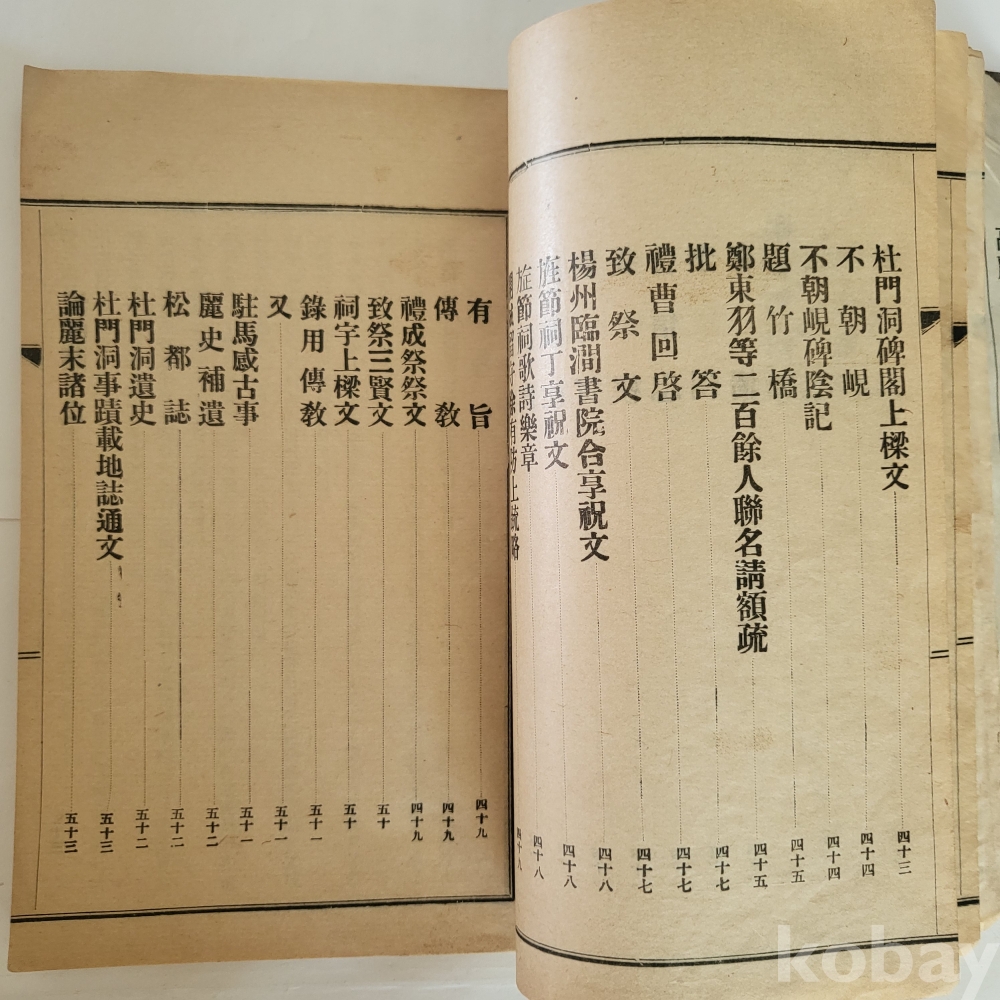 杜門洞碑閣上樑文 四十三
不朝峴 四十四
不朝峴碑陰記 四十四
題竹橋 四十五
鄭東羽等二百餘人聯名請額疏 四十五
批答 四十七
禮曹回啓 四十七
致祭文 四十八
楊州臨澗書院合享祝文 四十八
旌節祠丁享祝文 四十八
旌節祠歌詩樂章
有旨 四十九
傳敎 四十九
禮成祭祭文 四十九
致祭三賢文 五十
祠宇上樑文 五十
錄用傳敎 五十一
又 五十一
駐馬感古事 五十一
麗史補遺 五十二
松都誌 五十二
杜門洞遺史 五十二
杜門洞事蹟載地誌通文 五十三
論麗末諸位 五十三
kobay